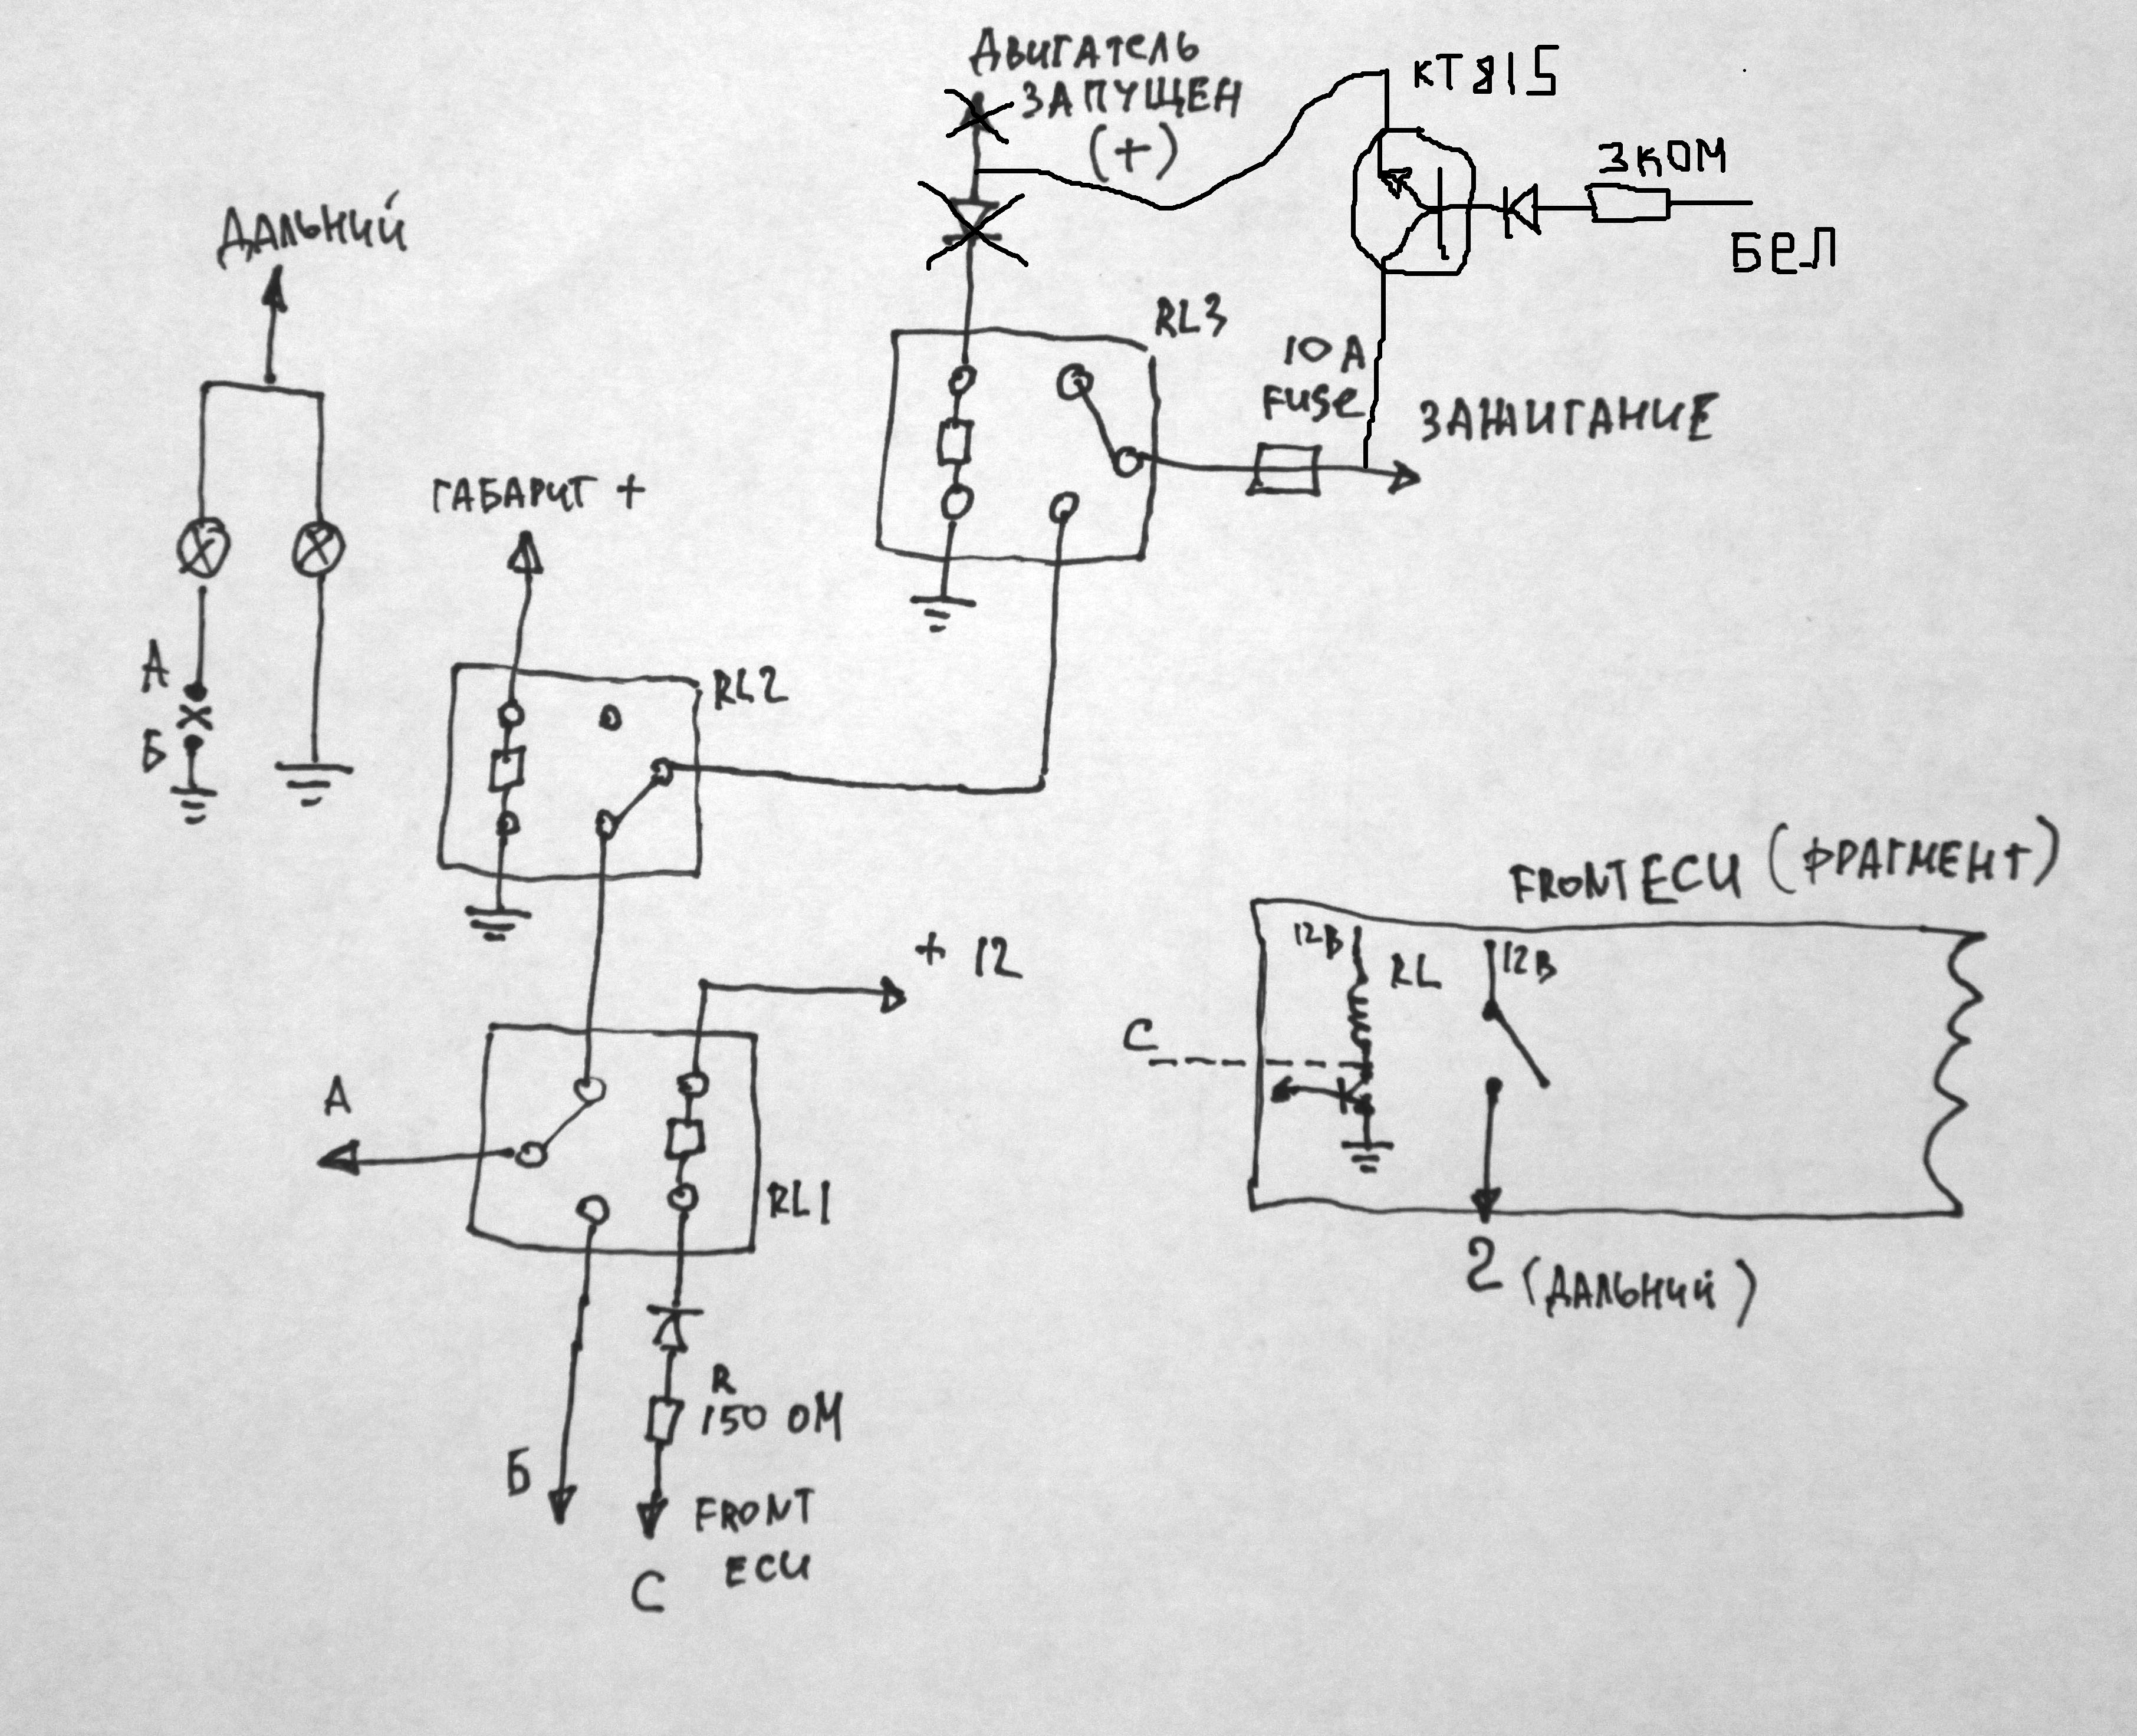 ДВИГАТЕЛЬ
ЗАПУЩЕН
(+)
КТ815
3 КОМ
БЕЛ
ДАЛЬНИЙ
ГАБАРИТ +
RL3
10 А
FUSE
ЗАЖИГАНИЕ
А
Б
RL2
+ 12
А
RL1
Б
R
150 ОМ
FRONT
ECU
C
FRONT ECU (ФРАГМЕНТ)
12В
RL
12В
C
2 (ДАЛЬНИЙ)